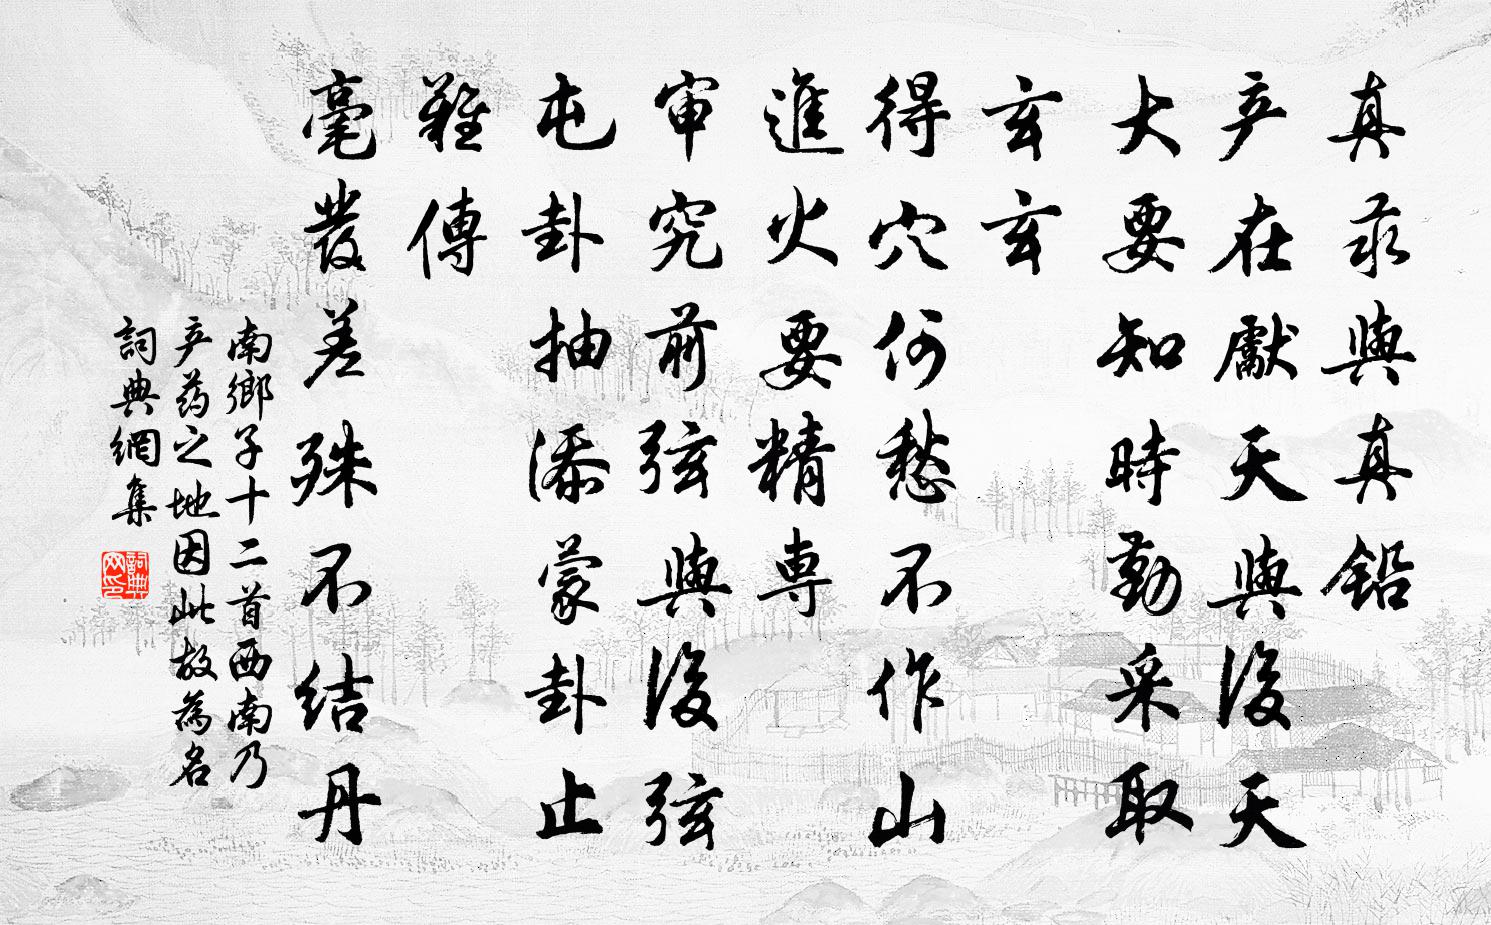 真汞與真鉛
产在獻天與後天
大要知時勤采取
玄玄
得穴何愁不作山
進火要精専
审究前弦與後弦
屯卦抽添蒙卦止
難傳
毫發差殊不结丹
南鄉子十二首西南乃
产药之地因此故為名
詞典網集
詞典网印